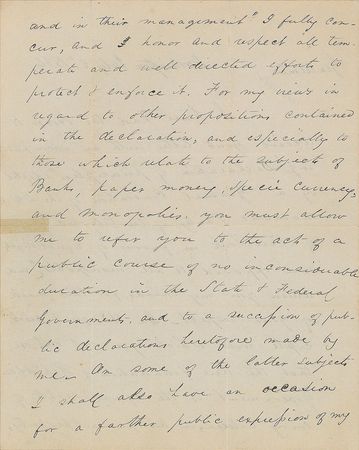 and in their management" I fully con-
cur, and I honor and respect all tem-
perate and well directed efforts to
protect & enforce it. For my views in
regard to other propositions contained
in the declaration, and especially to
those which relate to the subjects of
Banks, paper money, Specie Currency,
and monopolies, you must allow
me to refer you to the acts of a
public course of no inconsiderable
duration in the State & Federal
Governments, and to a succession of pub-
lic declarations heretofore made by
me. On some of the latter subjects
I shall also have an occasion
for a farther public expression of my